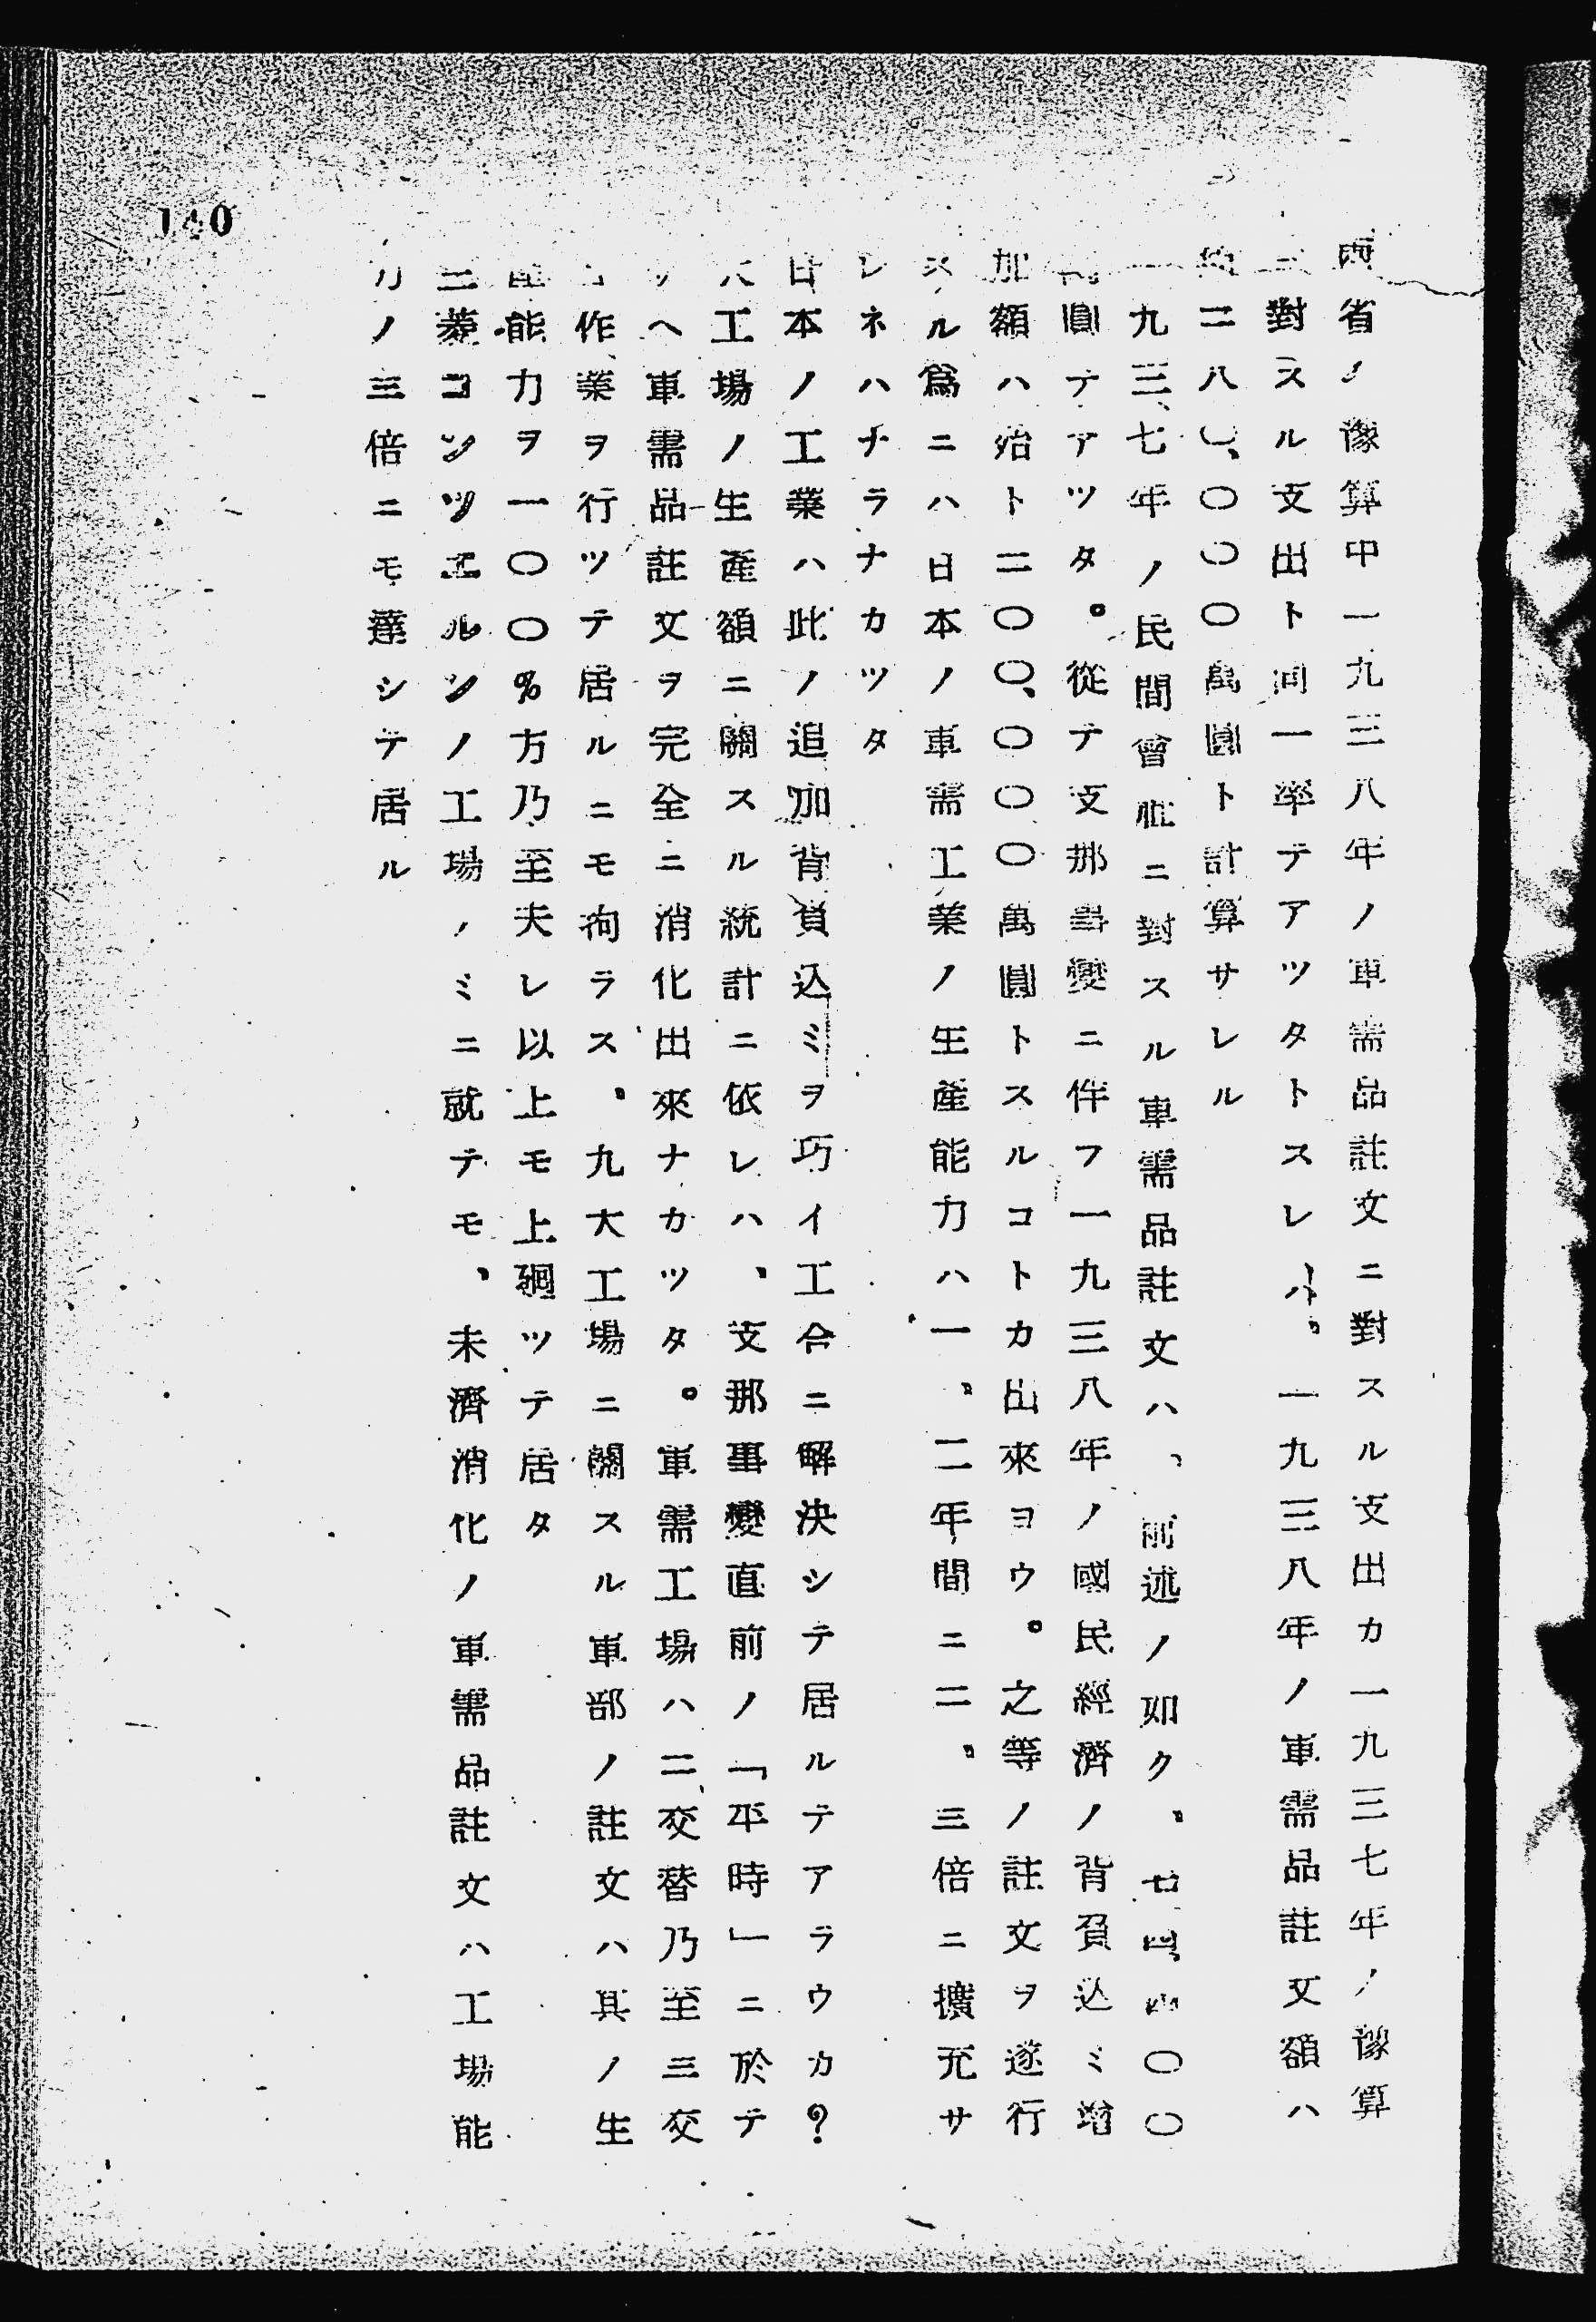 両省ノ豫算中一九三八年ノ軍需品註文ニ對スル支出カ一九三七年ノ豫算
ニ對スル支出ト同一率テアツタトスレハ、一九三八年ノ軍需品註文額ハ
二八〇、〇〇〇萬圓ト計算サレル
一九三七年ノ民間會社ニ對スル軍需品註文ハ、前述ノ如ク、〇〇
圓テアツタ。從テ支那事變ニ伴フ一九三八年ノ國民經濟ノ背負込ミ增
加額ハ殆ト二〇〇、〇〇〇萬圓トスルコトカ出來ヨウ。之等ノ註文ヲ遂行
スル爲ニハ日本ノ軍需工業ノ生產能力ハ一、二年間ニ二、三倍ニ擴充サ
レネハナラナカツタ
日本ノ工業ハ此ノ追加背負込ミヲ巧イ工合ニ解決シテ居ルテアラウカ?
大工場ノ生產額ニ關スル統計ニ依レハ、支那事變直前ノ「平時」ニ於テ
サヘ軍需品註文ヲ完全ニ消化出來ナカツタ。軍需工場ハ二交替乃至三交
作業ヲ行ツテ居ルニモ拘ラス、九大工場ニ關スル軍部ノ註文ハ其ノ生
產能力ヲ一〇〇%方乃至夫レ以上モ上廻ツテ居タ
三菱コンツエルンノ工場ノミニ就テモ、未濟消化ノ軍需品註文ハ工場能
力ノ三倍ニモ達シテ居ル
140